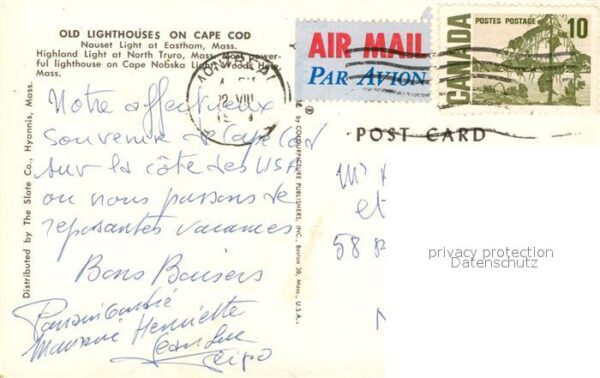 OLD LIGHTHOUSES ON CAPE COD
Nauset Light at Eastham, Mass.
Highland Light at North Truro, Mass. Most power-
ful lighthouse on Cape Nobska Light, Woods Hole,
Mass.
AIR MAIL
PAR AVION
POSTES POSTAGE
10
CANADA
VIII
POST CARD
Notre affectueux
souvenir de Cape Cod
sur la côte des USA
ou nous passons de
reposantes vacances
Bons Baisers
Henriette
Jean Luc
et
58
privacy protection
Datenschutz
Distributed by The Slate Co., Hyannis, Mass.
by COLOURPICTURE PUBLISHERS, INC., Boston 30, Mass., U.S.A.